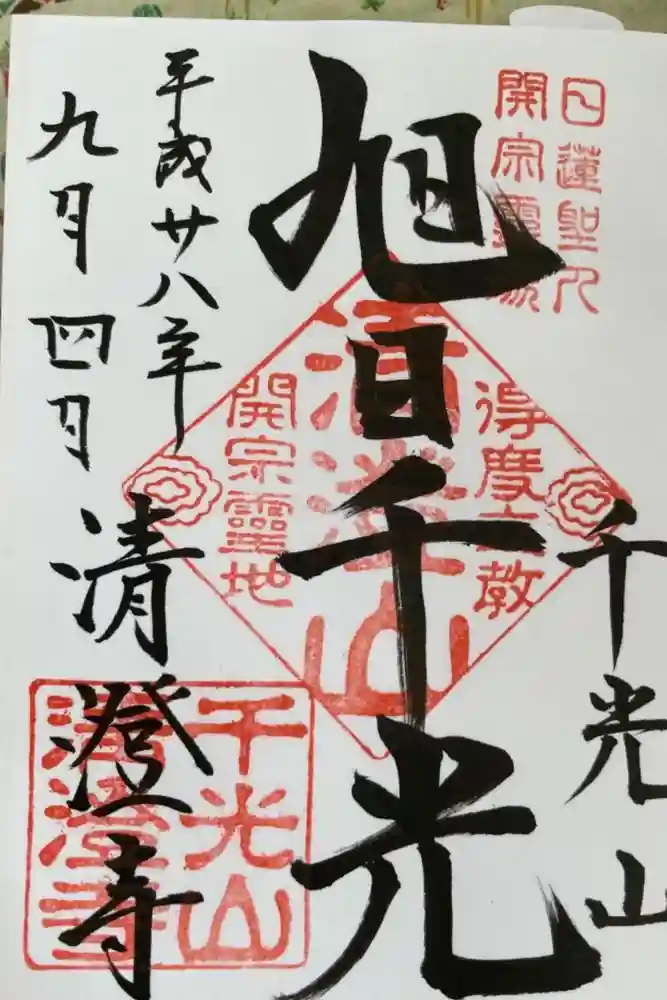 日蓮聖人
開宗靈
千光山
旭日千光
得度立教
清澄山
開宗靈地
平成廿八年
九月四日
清澄寺
千光山
清澄寺